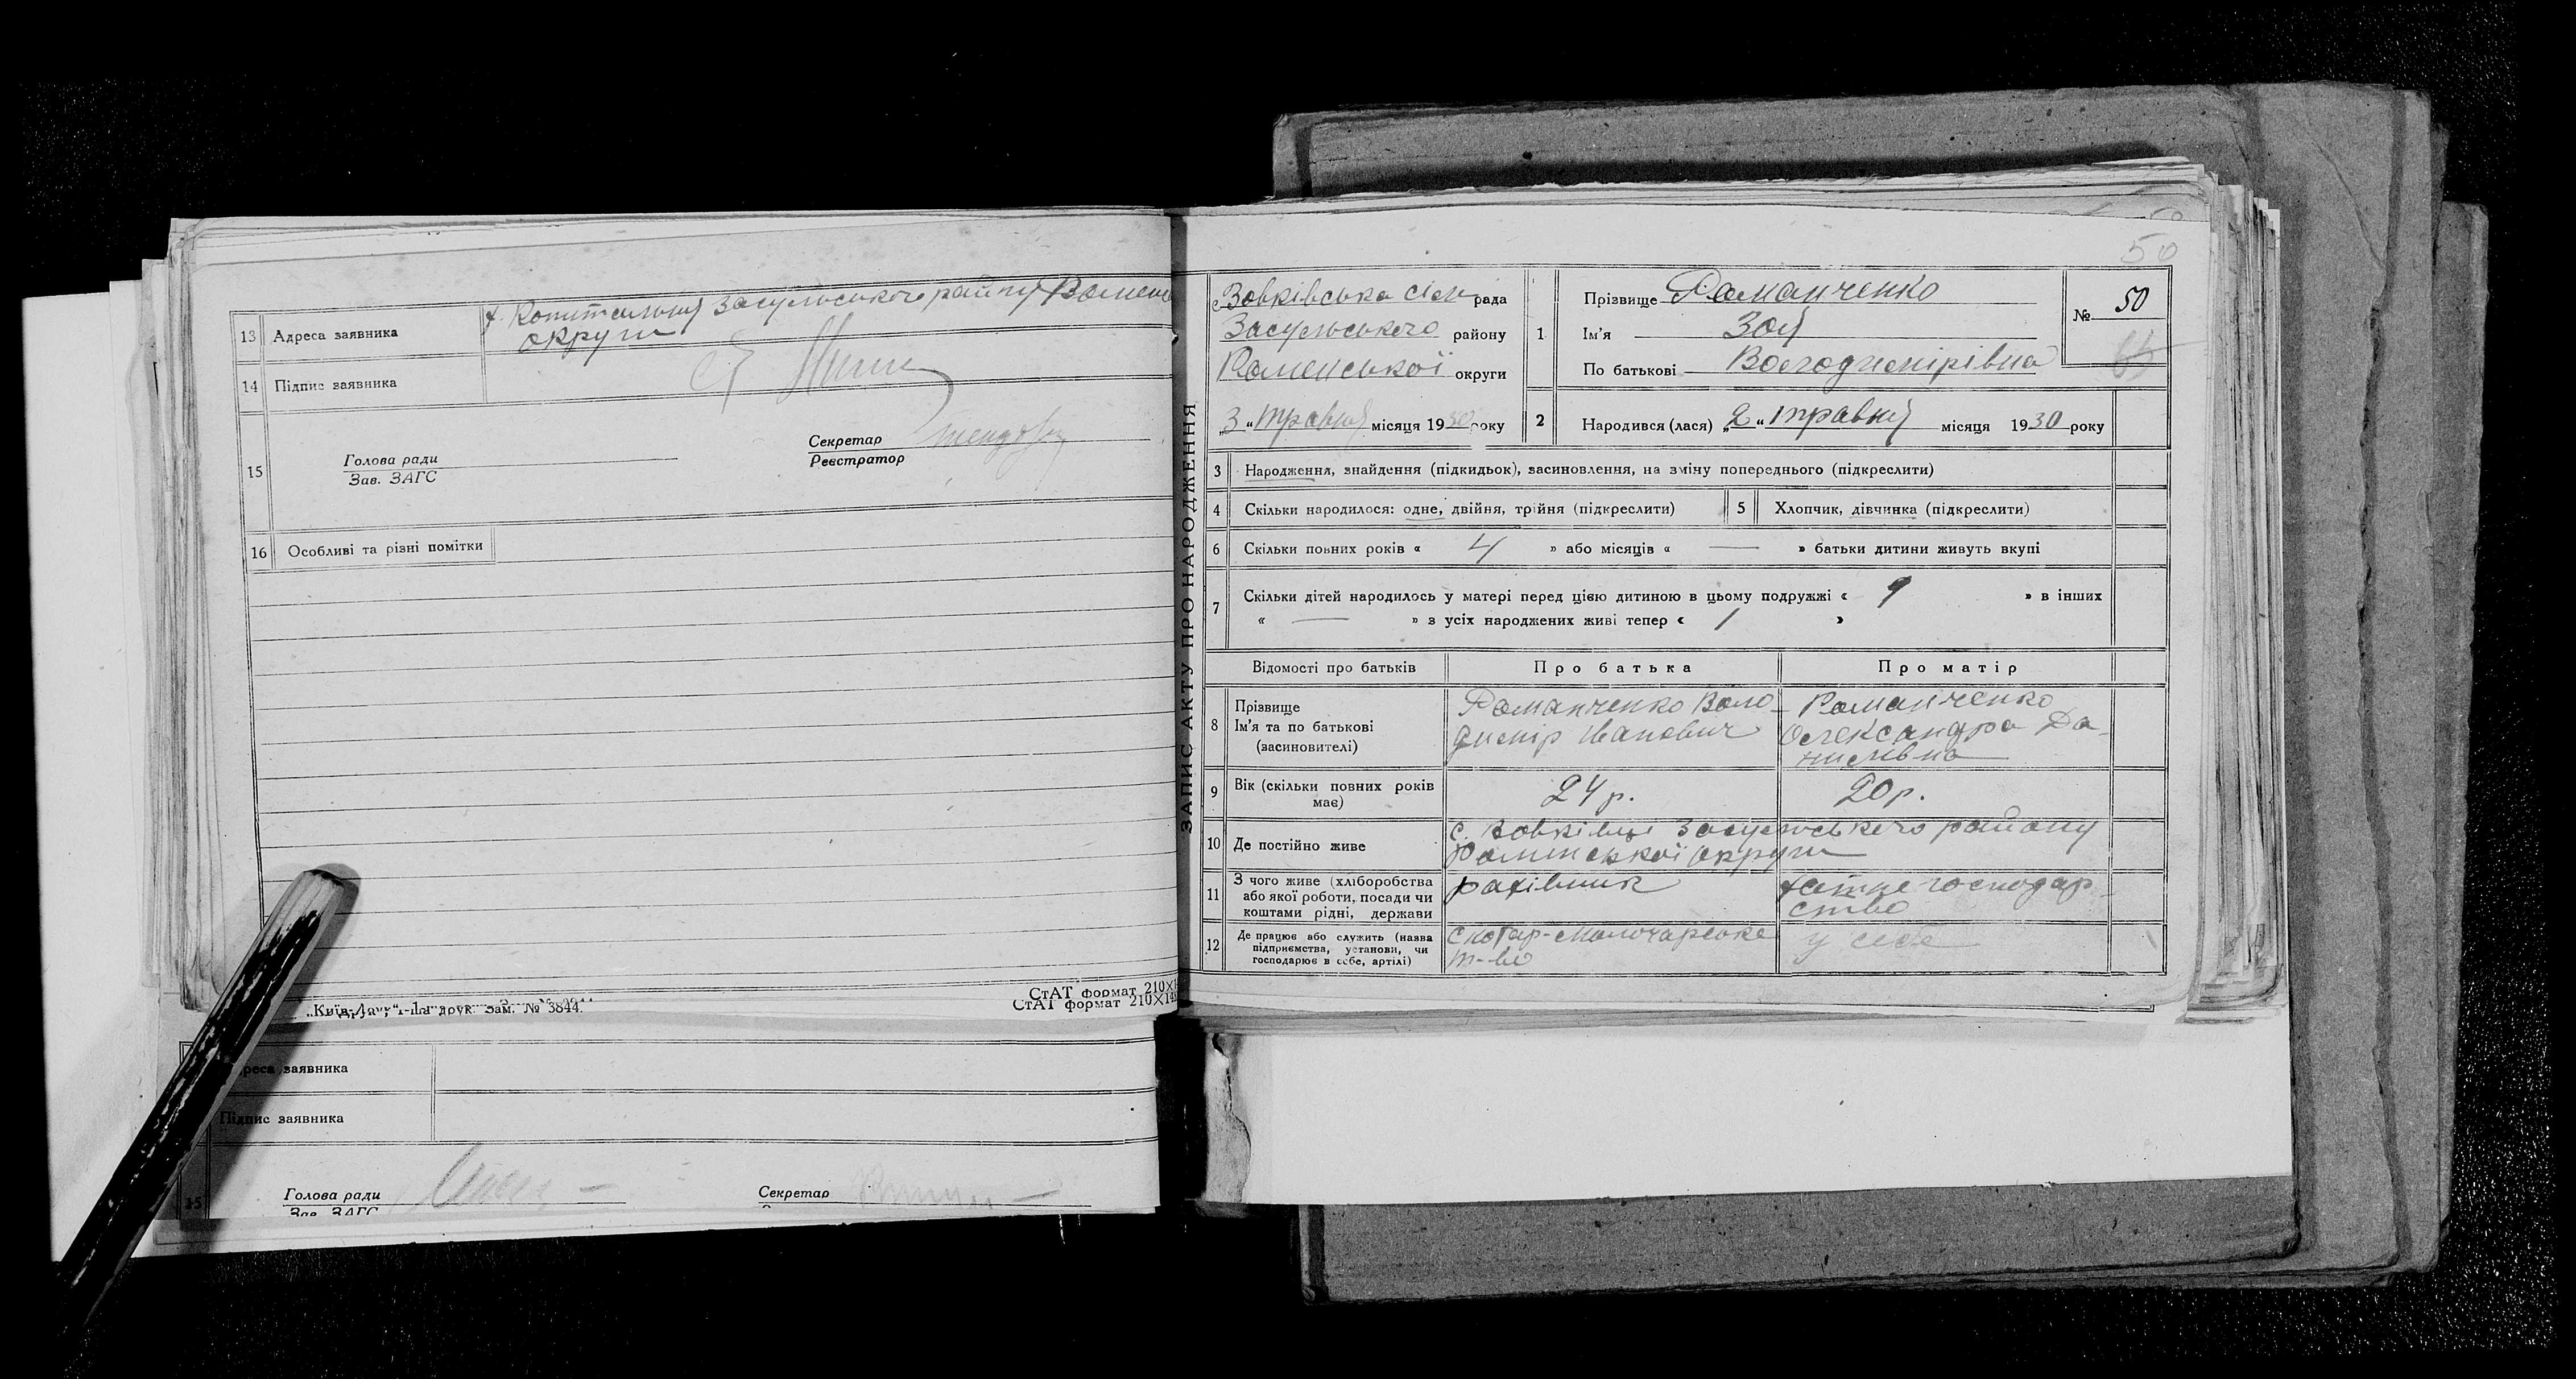 13 Адреса заявника х. Копительний Засульського району Ромен
округи
14 Підпис заявника
15 Голова ради
Зав. ЗАГС
Секретар
Реєстратор
16 Особливі та різні помітки
„Київ-Друк“ Зам. № 3844.
СтАТ формат 210×1
СтАТ формат 210×14
Адреса заявника
Підпис заявника
15 Голова ради
Зав. ЗАГС
Секретар
ЗАПИС АКТУ ПРО НАРОДЖЕННЯ
50
Вовківська сіль рада
Засульського району
Роменської округи
„3“ травня місяця 1930 року
1 Прізвище Романченко
Ім'я Зоя
По батькові Володимирівна
№ 50
2 Народився (лася) „2“ травня місяця 1930 року
3 Народження, знайдення (підкидьок), засиновлення, на зміну попереднього (підкреслити)
4 Скільки народилося: одне, двійня, трійня (підкреслити) 5 Хлопчик, дівчинка (підкреслити)
6 Скільки повних років « 4 » або місяців « — » батьки дитини живуть вкупі
7 Скільки дітей народилось у матері перед цією дитиною в цьому подружжі « » в інших
« — » з усіх народжених живі тепер « 1 »
Відомості про батьків Про батька Про матір
8 Прізвище
Ім'я та по батькові
(засиновителі)
Романченко Воло-
димир Іванович
Романченко
Олександра Да-
нилівна
9 Вік (скільки повних років
має)
24 р. 20 р.
10 Де постійно живе
с. Вовківці Засульського району
Роменської округи
11 З чого живе (хліборобства
або якої роботи, посади чи
коштами рідні, держави
рахівник
хатнє господар-
ство
12 Де працює або служить (назва
підприємства, установи, чи
господарює в себе, артілі)
Скотар-молочарське
т-во
у себе